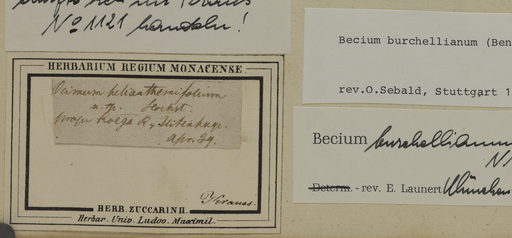 No 1121 handeln!
HERBARIUM REGIUM MONACENSE.
Ocimum helianthemifolium
n. sp. Hochst.
prope Koega R., Uitenhage.
Apr. 29.
Krauss.
HERB. ZUCCARINII.
Herbar. Univ. Ludov. Maximil.
Becium burchellianum (Ben
rev.O.Sebald, Stuttgart 1
Becium burchellianum
Determ. - rev. E. Launert München